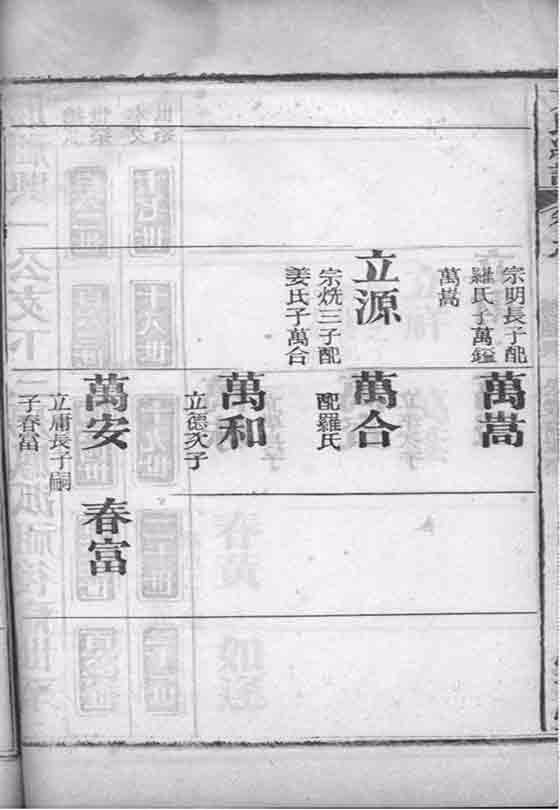 宗明長子配
羅氏子萬鎰
萬嵩
立源
宗烑三子配
姜氏子萬合
萬嵩
萬合
配羅氏
萬和
立德次子
萬安
立庸長子嗣
子春富
春富